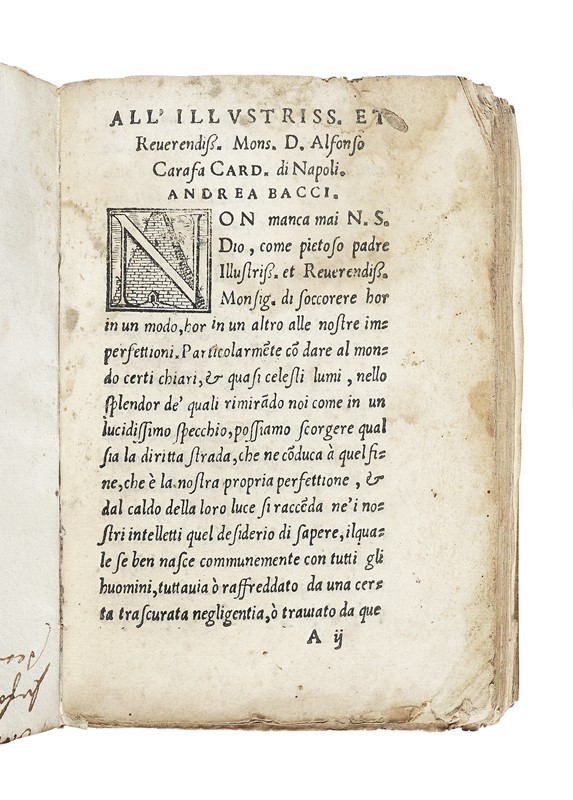 ALL' ILLVSTRISS. ET
Reuerendiß. Mons. D. Alfonſo
Carafa CARD. di Napoli.
ANDREA BACCI.
NON manca mai N. S.
DIO, come pietoſo padre
Illuſtriß. et Reuerendiß.
Monſig. di ſoccorere hor
in un modo, hor in un altro alle noſtre im=
perfettioni. Particolarmẽte cõ dare al mon=
do certi chiari, & quaſi celeſti lumi, nello
ſplendor de' quali rimirãdo noi come in un
lucidiſſimo ſpecchio, poſſiamo ſcorgere qual
ſia la diritta ſtrada, che ne cõduca à quel fi=
ne, che è la noſtra propria perfettione, &
dal caldo della loro luce ſi raccẽda ne' i no=
ſtri intelletti quel deſiderio di ſapere, ilqua=
le ſe ben naſce communemente con tutti gli
huomini, tuttauia ò raffreddato da una cer=
ta traſcurata negligentia, ò trauiato da que
A ij